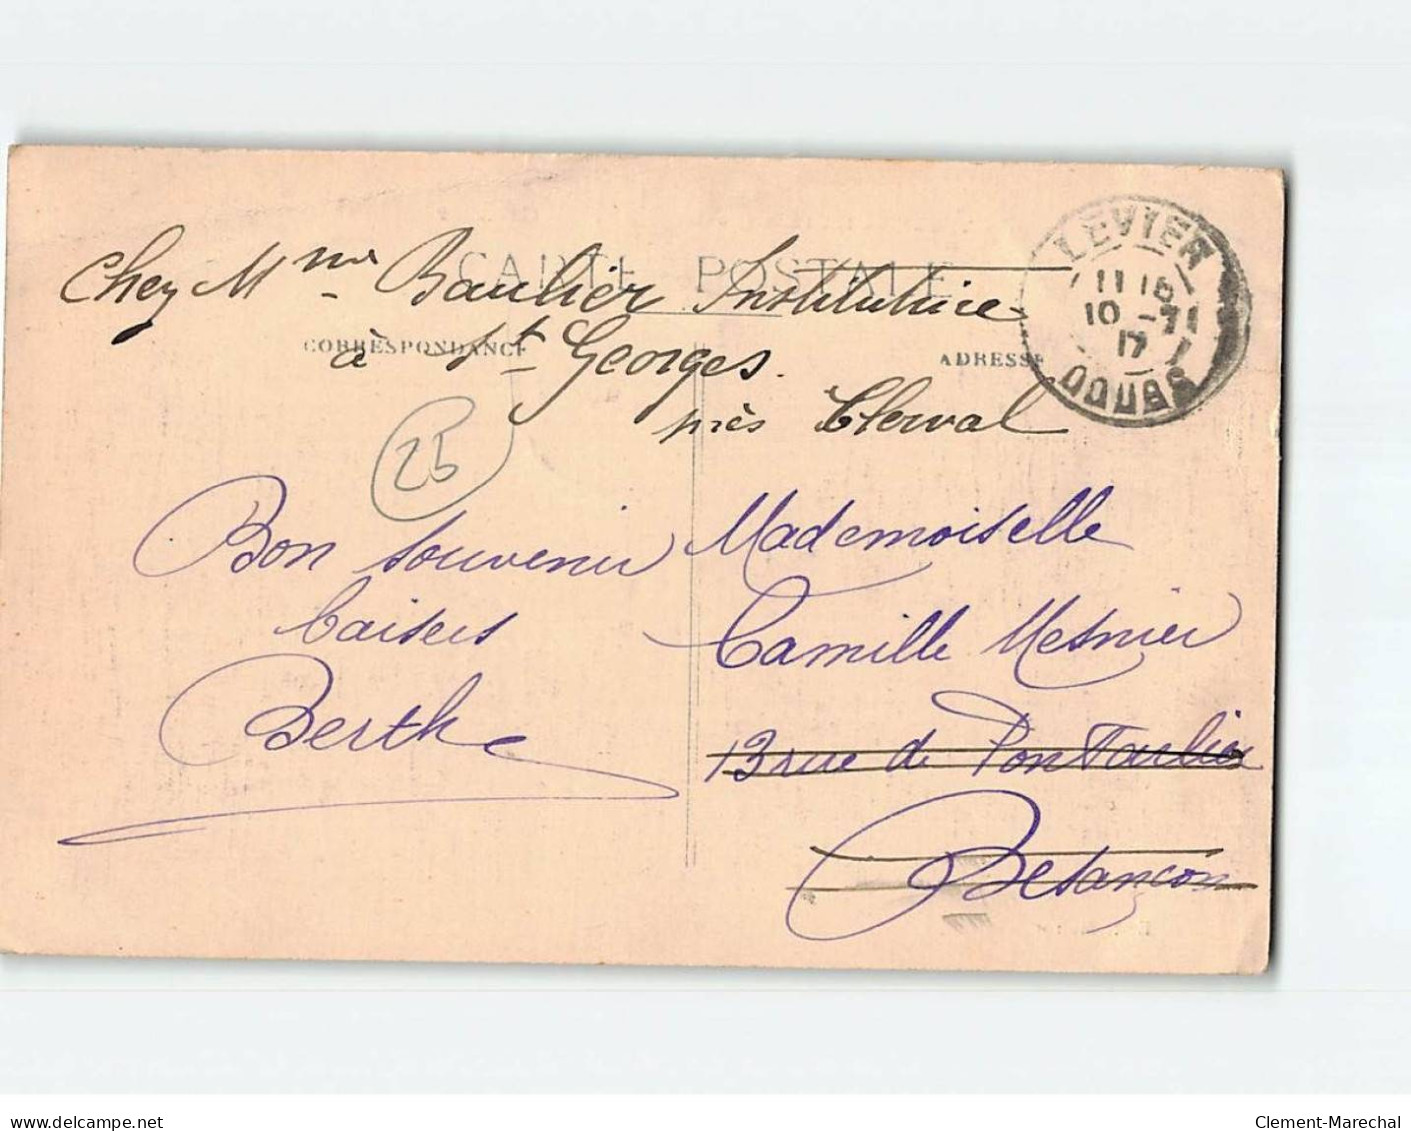 CARTE POSTALE
CORRESPONDANCE
ADRESSE
LEVIER
11 15
10 -7
17
DOUBS
Chez Mme Baulier Institutrice
à St Georges.
près Clerval
25
Bon souvenir
baisers
Berthe
Mademoiselle
Camille Mesnier
13 rue de Pontarlier
Besançon
www.delcampe.net
Clement-Marechal